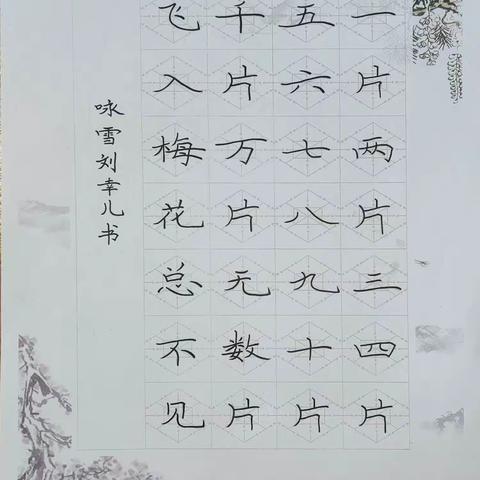 一片两片三四片
五六七八九十片
千片万片无数片
飞入梅花总不见
咏雪刘幸儿书